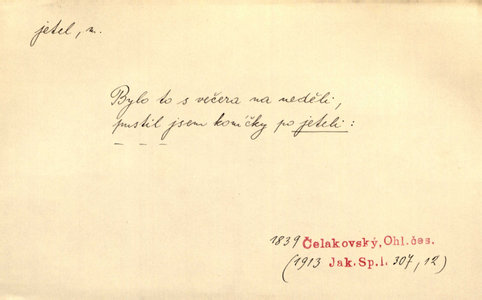 jetel, m.
Bylo to s večera na neděli,
pustil jsem koníčky po jeteli:
– – –
1839 Čelakovský, Ohl. čes.
(1913 Jak. Sp. I. 307, 12)